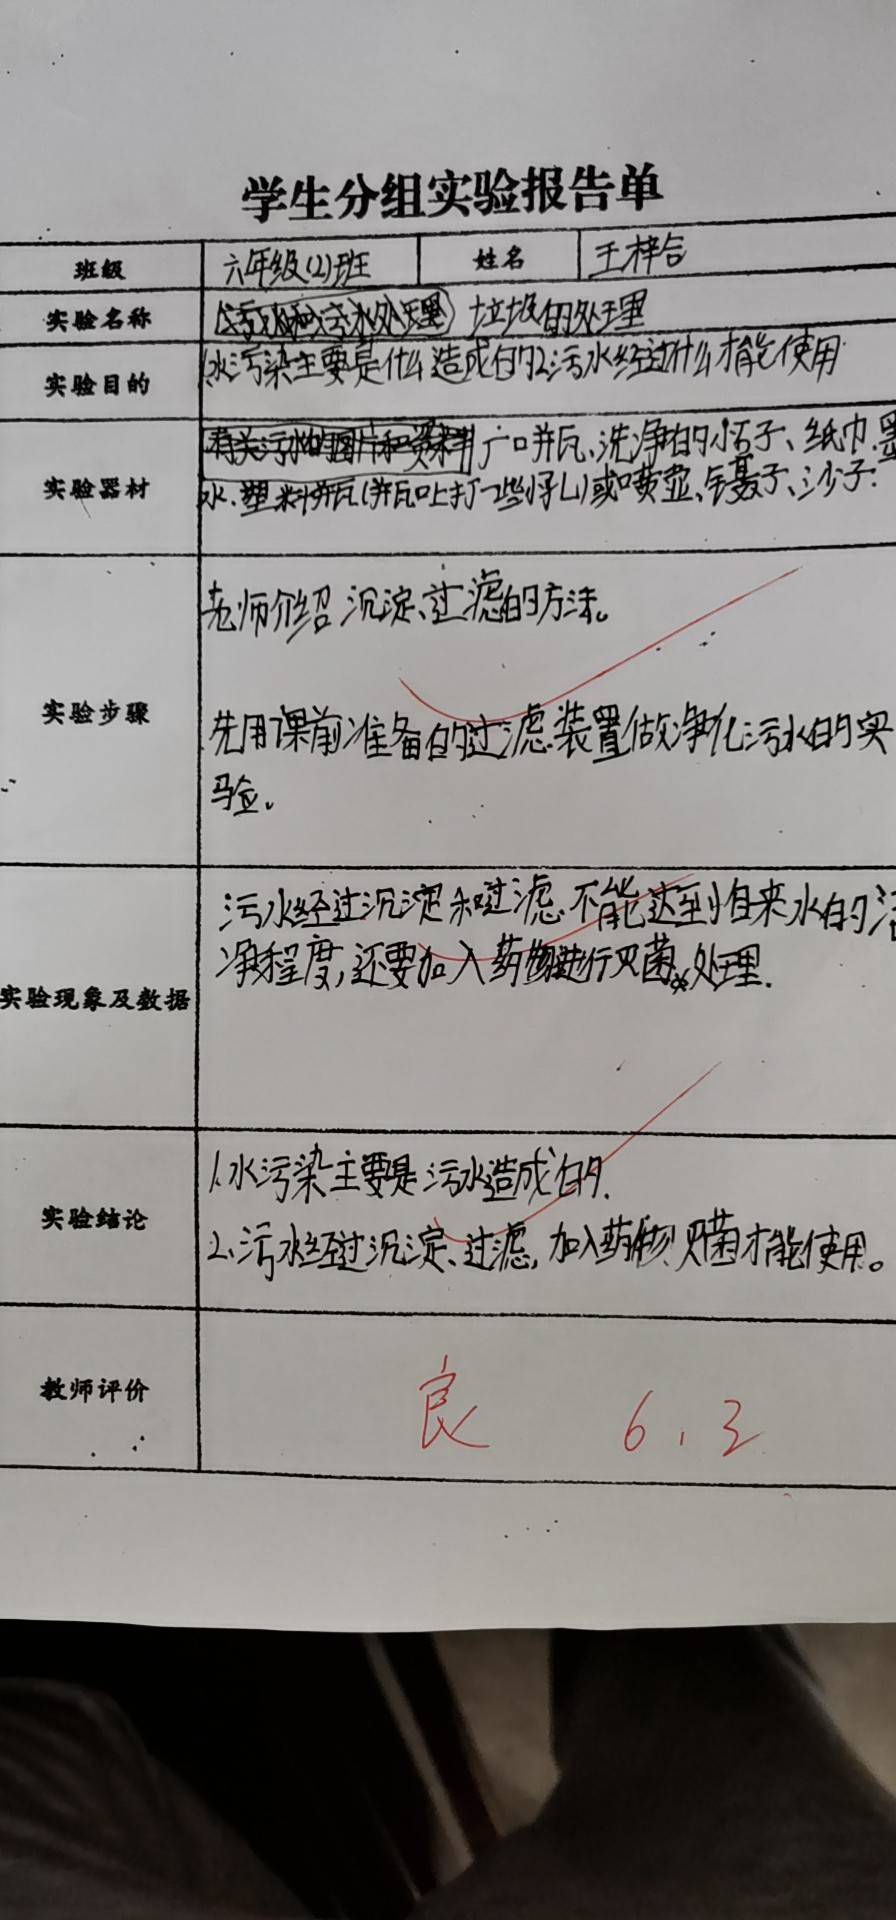 学生分组实验报告单
班级 六年级(2)班 姓名 王梓合
实验名称 (污水和污水处理) 垃圾的处理
实验目的 1.水污染主要是什么造成的2.污水经过什么才能使用
有关污水的图片和资料 广口瓶、洗净的小石子、纸巾、墨
实验器材 水、塑料瓶(瓶口上打一些小孔)或喷壶、镊子、沙子.
老师介绍沉淀、过滤的方法。
实验步骤 先用课前准备的过滤装置做净化污水的实
验。
污水经过沉淀和过滤不能达到自来水的洁
净程度,还要加入药物进行灭菌处理.
实验现象及数据
1.水污染主要是污水造成的.
实验结论
2.污水经过沉淀、过滤,加入药物灭菌才能使用。
教师评价 良 6.2